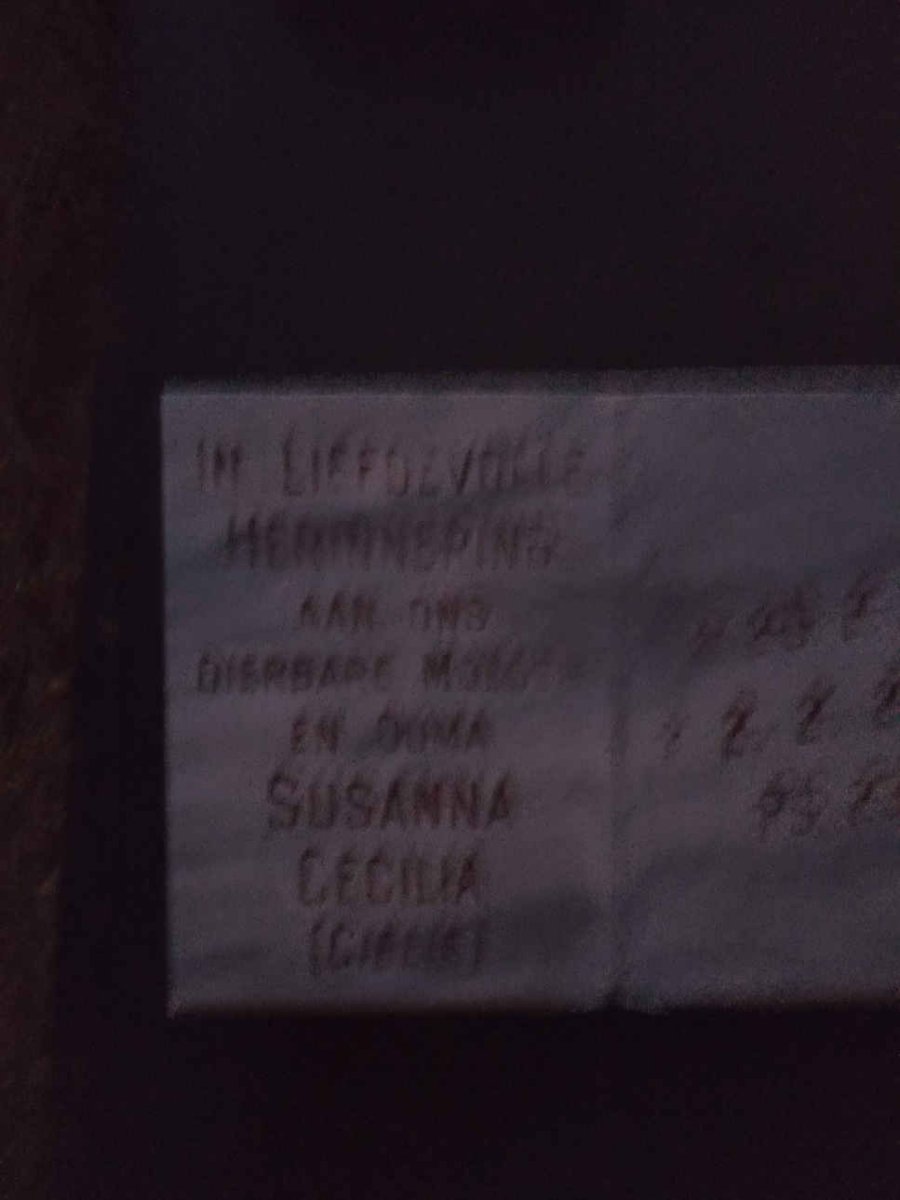 IN LIEFDEVOLLE
HERINNERING
AAN ONS
DIERBARE MOEDER
EN OUMA
SUSANNA
CECILIA